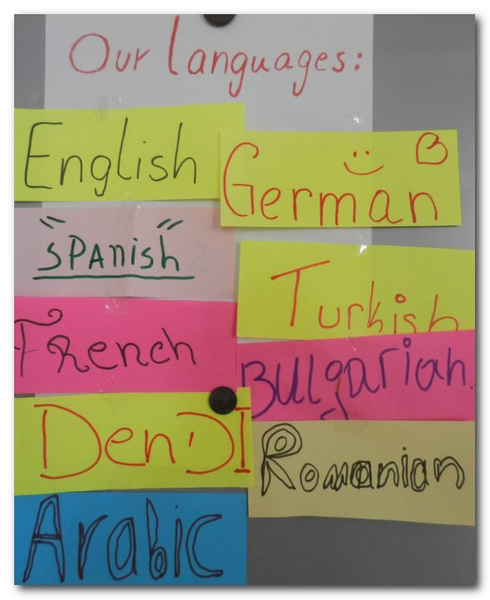 Our languages:
English
German
SPAnish
Turkish
French
BUlgarian
DenDI
Romanian
Arabic